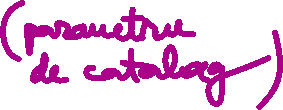 (parametrii
de catalog)